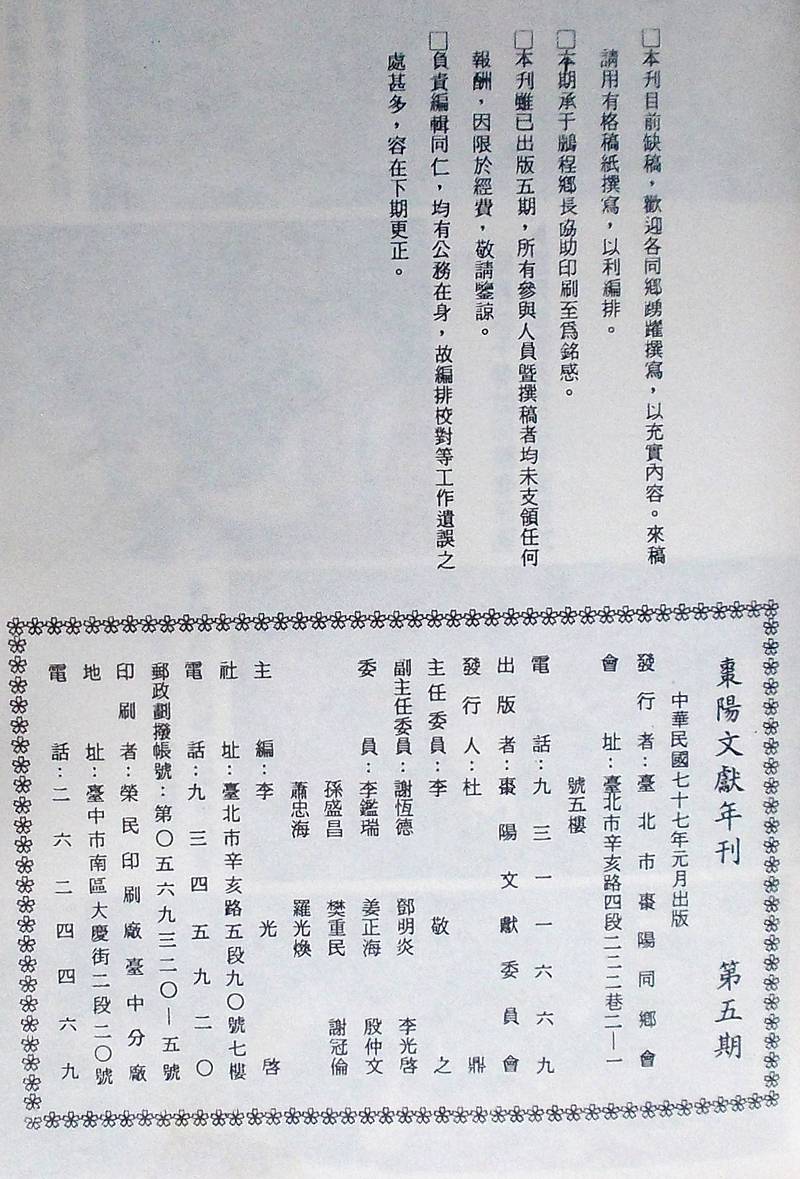 □本刊目前缺稿，歡迎各同鄉踴躍撰寫，以充實內容。來稿
請用有格稿紙撰寫，以利編排。
□本期承于鵬程鄉長協助印刷至爲銘感。
□本刊雖已出版五期，所有參與人員暨撰稿者均未支領任何
報酬，因限於經費，敬請鑒諒。
□負責編輯同仁，均有公務在身，故編排校對等工作遺誤之
處甚多，容在下期更正。
棗陽文獻年刊 第五期
中華民國七十七年元月出版
發行者：臺北市棗陽同鄉會
會址：臺北市辛亥路四段二二二巷二—一
號五樓
電話：九三一一六六九
出版者：棗陽文獻委員會
發行人：杜鼎
主任委員：李敬之
副主任委員：謝恆德 鄧明炎 李光啓
委員：李鑑瑞 姜正海 殷仲文
孫盛昌 樊重民 謝冠倫
蕭忠海 羅光煥
主編：李光啓
社址：臺北市辛亥路五段九〇號七樓
電話：九三四五九二〇
郵政劃撥帳號：第〇五六九三二〇—五號
印刷者：榮民印刷廠臺中分廠
地址：臺中市南區大慶街二段二〇號
電話：二六二四四六九